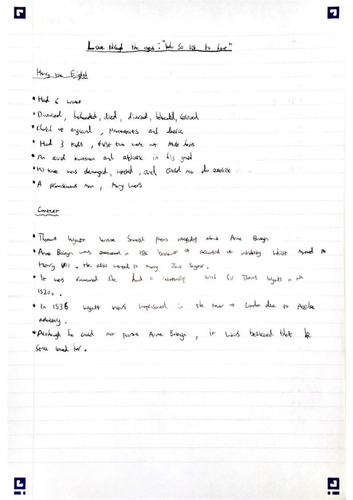 Love through the ages: "Who so list to hunt"
Henry the Eighth
• Had 6 wives
• Divorced, beheaded, died, divorced, beheaded, survived
• Church of england, Monasteries and
• Had 3 kids, first two were not male heirs
• An avid huntsman and athlete in his
• His knee was damaged, and could not do exercise
• A promiscuous man, many lovers
Context
• Thomas Wyatt wrote several poems allegedly about Anne Boleyn
• Anne Boleyn was executed in 1536 because of accused of infidelity whilst married to
Henry VIII. He also wanted to marry Jane Seymour.
• It was rumoured she had a relationship with Sir Thomas Wyatt in the
1520s.
• In 1536 Wyatt was imprisoned in the tower of London due to
adultery.
• Although he could not pursue Anne Boleyn, it was believed that he
still loved her.